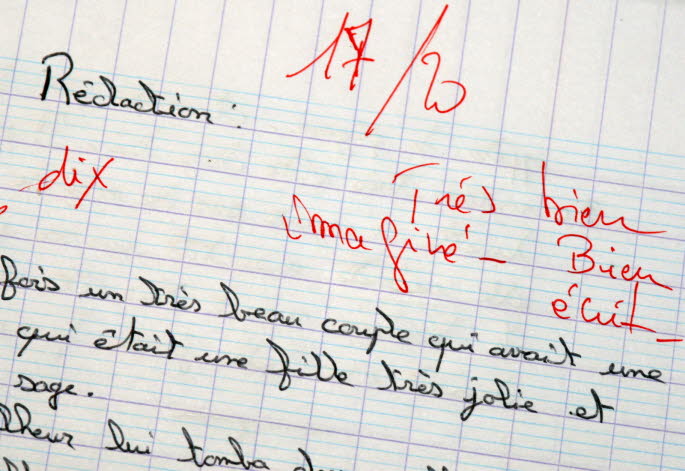 Rédaction :
17/20
dix
Très bien
imaginé - Bien
écrit -
fois un très beau couple qui avait une
qui était une fille très jolie et
sage.
lheur lui tomba